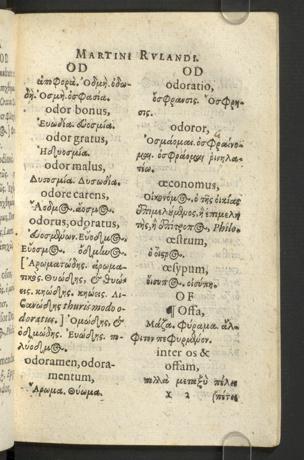 MARTINI RVLANDI.
OD
ἀποφορά. Ὀδμή. ὀδω-
δή. Ὀσμή. ὀσφρασία.
odor bonus,
Εὐωδία. εὐοσμία.
odor gratus,
Ἡδυοσμία.
odor malus,
Δυσοσμία. Δυσωδία.
odore carens,
Ἄοδμος. ἄοσμος.
odorus, odoratus,
Εὔοσμος.
[Ἀρωματώδης. ἀρωμα-
τικός. Θυώδης, & θυώ-
εις. κηώδης. κηώεις. Λι-
βανώδης thuris modo o-
doratus.] Ὀσμώδης, &
ὀδμώδης. Εὐώδης. πο-
λύοδμος.
odoramen, odora-
mentum,
Ἄρωμα. Θύωμα.
OD
odoratio,
ὄσφρανσις. Ὄσφρη-
σις.
odoror,
Ὀσμάομαι. ὀσφραίνο-
μαι. ὀσφράομαι ῥινηλα-
τέω.
œconomus,
Οἰκονόμος. ὁ τῆς οἰκίας
ἐπιμελούμενος, ἢ ἐπιμελη
τής, ἢ ἐπίτροπος, Philo.
œstrum,
ὁ οἶστρος.
œsypum,
οἴσυπος. οἰσύπη.
OF
¶ Offa,
Μάζα. Φύραμα. ἄλ-
φιτον πεφυραμένον.
inter os &
offam,
πολλὰ μεταξὺ πέλει
X 2